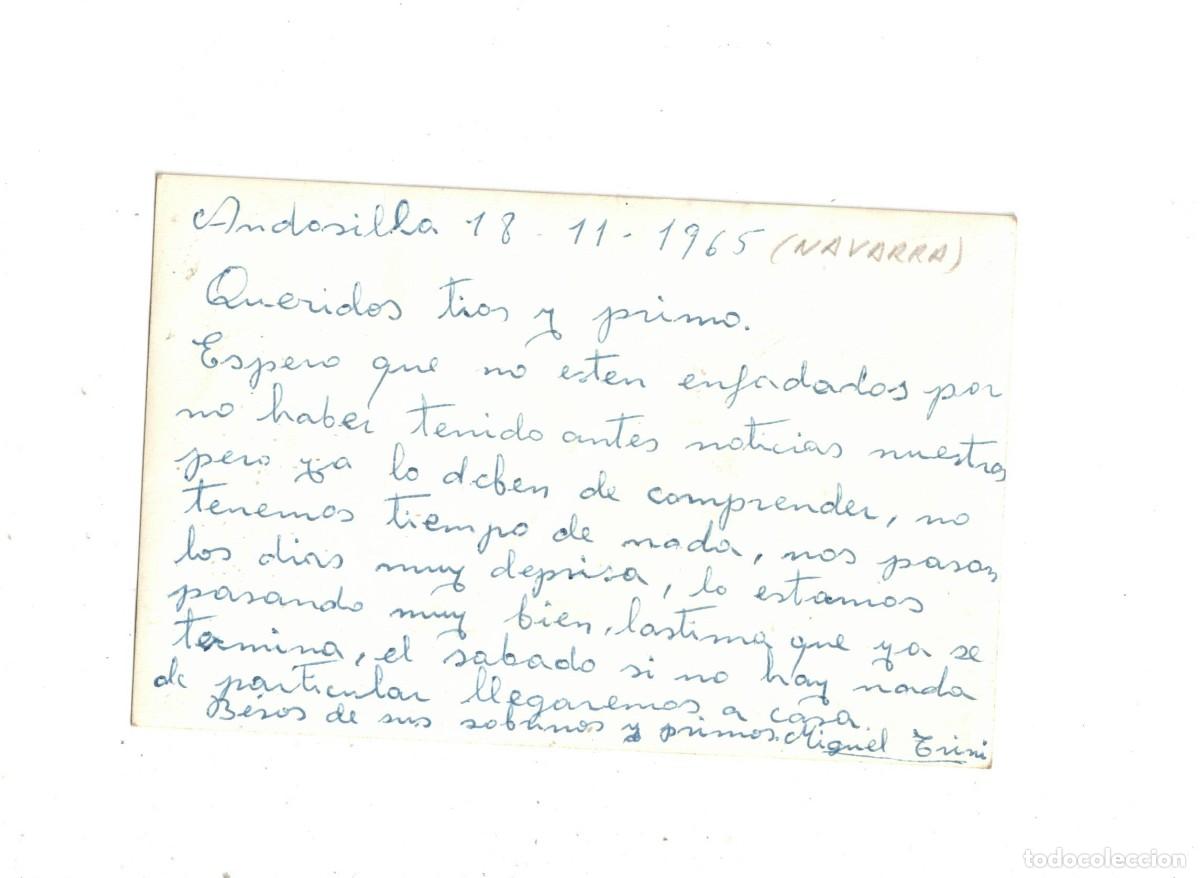 Andosilla 18 - 11 - 1965 (NAVARRA)
Queridos tios y primo.
Espero que no esten enfadados por
no haber tenido antes noticias nuestras
pero ya lo deben de comprender, no
tenemos tiempo de nada, nos pasan
los dias muy deprisa, lo estamos
pasando muy bien, lastima que ya se
termina, el sabado si no hay nada
de particular llegaremos a casa.
Besos de sus sobrinos y primos. Miguel Trini
todocoleccion